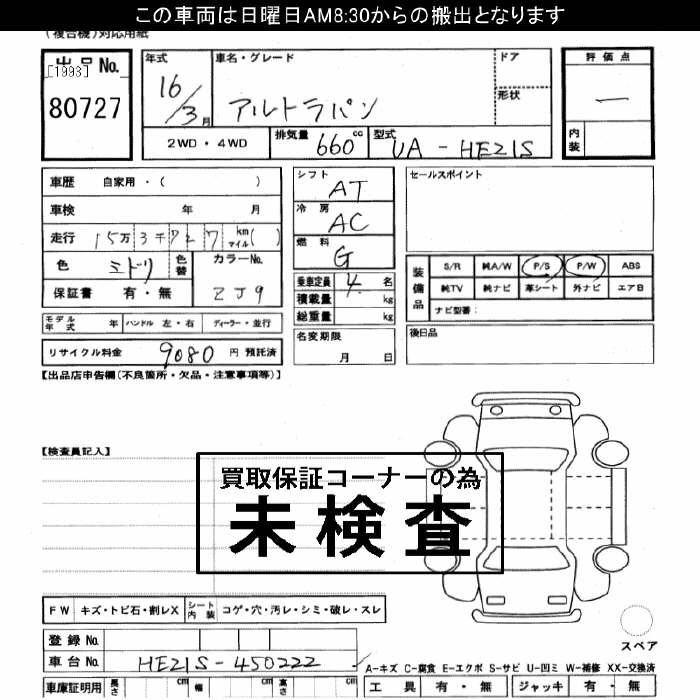 この車両は日曜日AM8:30からの搬出となります
(複合機)対応用紙
出品No. [1993] 80727
年式 16/3月
車名・グレード アルトラパン
ドア
形状
評価点 ー
内装
2WD・4WD 排気量 660 cc 型式 UA-HE21S
車歴 自家用・( )
車検 年 月
走行 15万3千727 km マイル( )
色 ミドリ 色替 カラーNo. ZJ9
保証書 有・無
シフト AT
冷房 AC
燃料 G
乗車定員 4 名
積載量 kg
総重量 kg
名変期限 月 日
セールスポイント
装備品 S/R 純A/W P/S P/W ABS
純TV 純ナビ 革シート 外ナビ エアB
ナビ型番:
後日品
モデル年式 年 ハンドル 左・右 ディーラー・並行
リサイクル料金 9080 円 預託済
【出品店申告欄(不良箇所・欠品・注意事項等)】
【検査員記入】
買取保証コーナーの為
未検査
FW キズ・トビ石・割レX シート内装 コゲ・穴・汚レ・シミ・破レ・スレ
登録No.
車台No. HE21S-450222
スペア
A-キズ C-腐食 E-エクボ S-サビ U-凹ミ W-補修 XX-交換済
車庫証明用 長さ cm 幅 cm 高さ cm
工具 有・無 ジャッキ 有・無